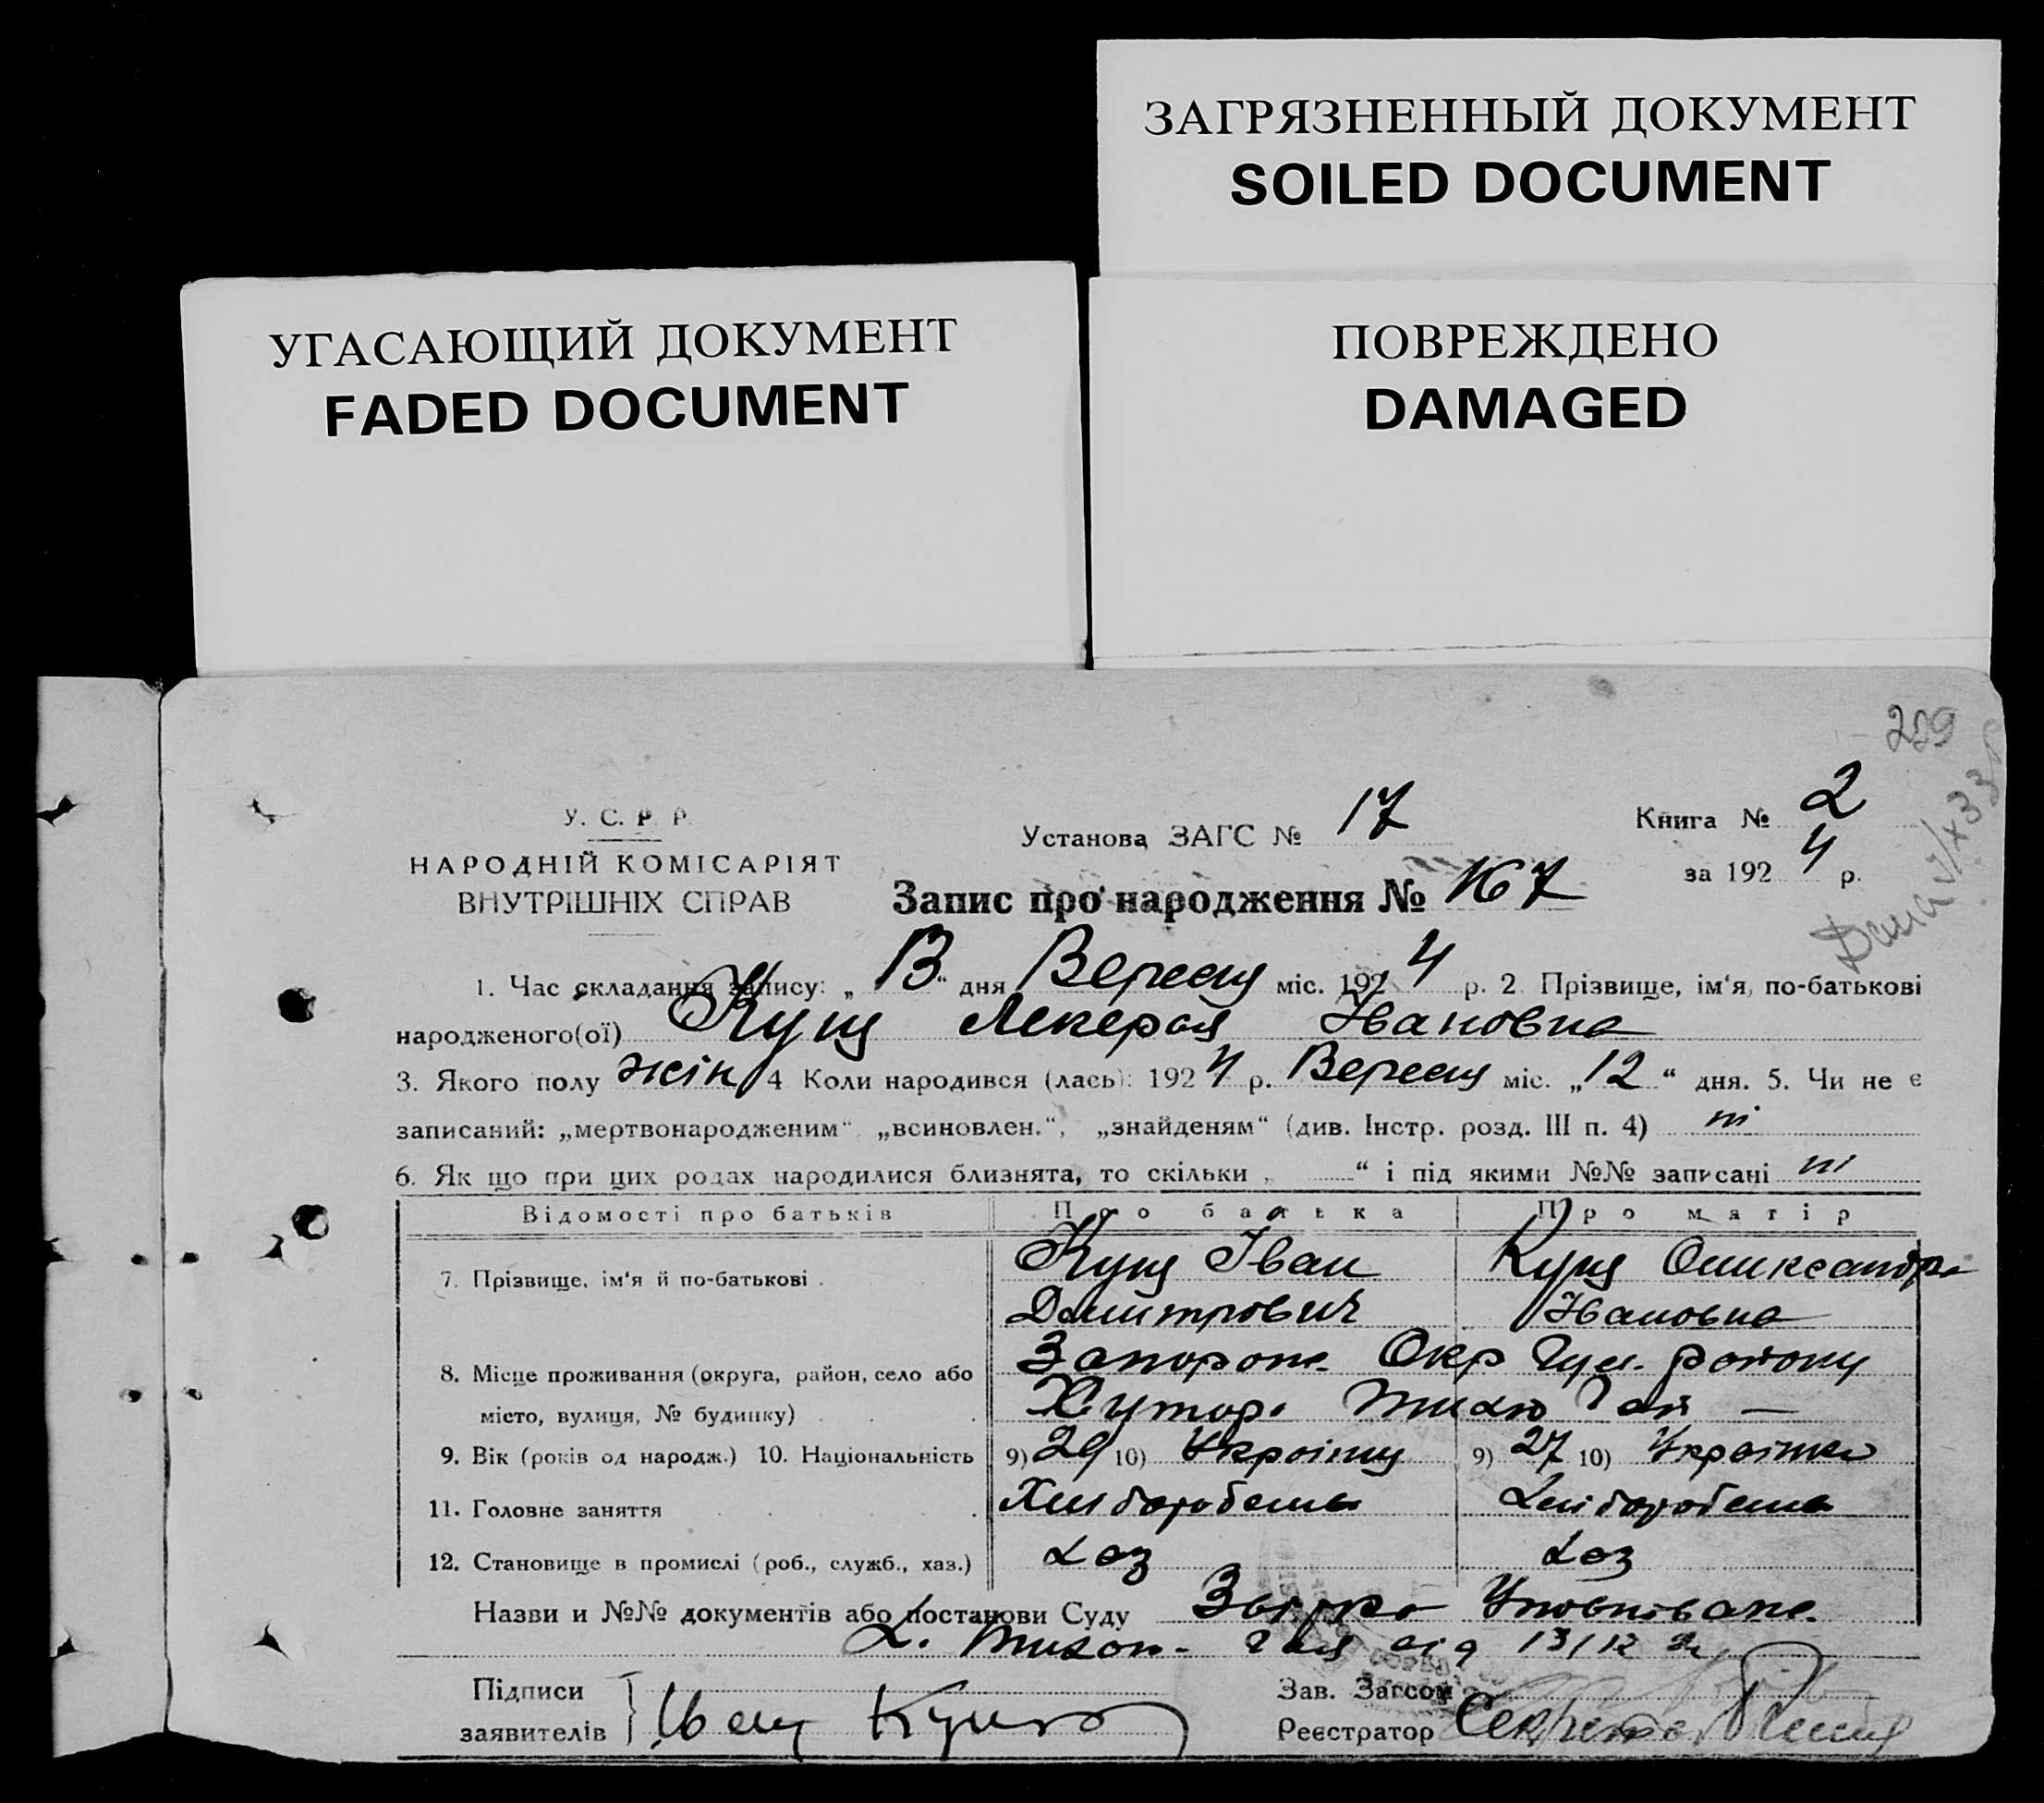 ЗАГРЯЗНЕННЫЙ ДОКУМЕНТ
SOILED DOCUMENT
УГАСАЮЩИЙ ДОКУМЕНТ
FADED DOCUMENT
ПОВРЕЖДЕНО
DAMAGED
У. С. Р. Р.
НАРОДНІЙ КОМІСАРІЯТ
ВНУТРІШНІХ СПРАВ
Установа ЗАГС № 17
Книга № 2
за 1924 р.
Запис про народження № 167
1. Час складання запису: „13“ дня Вересня міс. 1924 р. 2 Прізвище, ім'я, по-батькові
народженого(ої) Кущ Івановна
3. Якого полу жін 4 Коли народився (лась): 1924 р. Вересня міс. „12“ дня. 5. Чи не є
записаний: „мертвонародженим“, „всиновлен.“, „знайденям“ (див. Інстр. розд. III п. 4) ні
6. Як що при цих родах народилися близнята, то скільки „ “ і під якими №№ записані ні
Відомості про батьків Про батька Про матір
7. Прізвище, ім'я й по-батькові . Кущ Іван Кущ
Дмитрович Івановна
8. Місце проживання (округа, район, село або Запорож. Окр Гул. району
місто, вулиця, № будинку) Хутор. Гай —
9. Вік (років од народж.) 10. Національність 9) 29 10) Украінц 9) 27 10) Украінка
11. Головне заняття
12. Становище в промислі (роб., служб., хаз.) хаз хаз
Назви и №№ документів або постанови Суду
Х. Тихон- Гая від 13/IX 24
Підписи
заявителів Іван Кущ
Зав. Загсом
Реєстратор Секретар